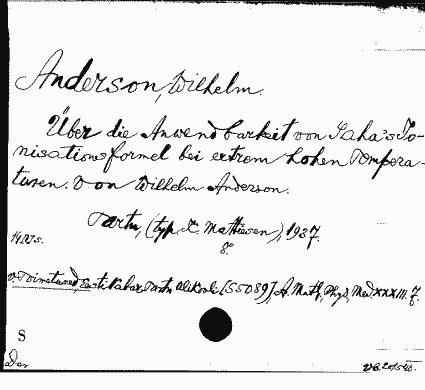 Anderson, Wilhelm.
Über die Anwendbarkeit von Saha's Io-
nisationsformel bei extrem hohen Tempera-
turen. Von Wilhelm Anderson.
Tartu, (typ. K. Mattiesen), 1937.
8.
14 lk.
v. Toimetused, Eesti Vabar. Tartu Ülikooli [55089], A. Math., Phys., Med. XXXIII. 7.
S